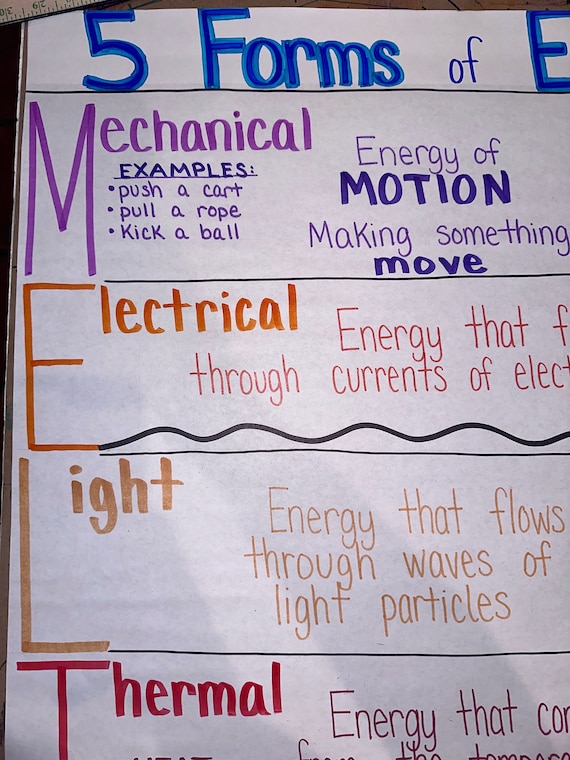 5 Forms of E
Mechanical
EXAMPLES:
• push a cart
• pull a rope
• Kick a ball
Energy of
MOTION
Making something
move
Electrical
Energy that f
through currents of elect
Light
Energy that flows
through waves of
light particles
Thermal
Energy that con
HEAT
from the tempera